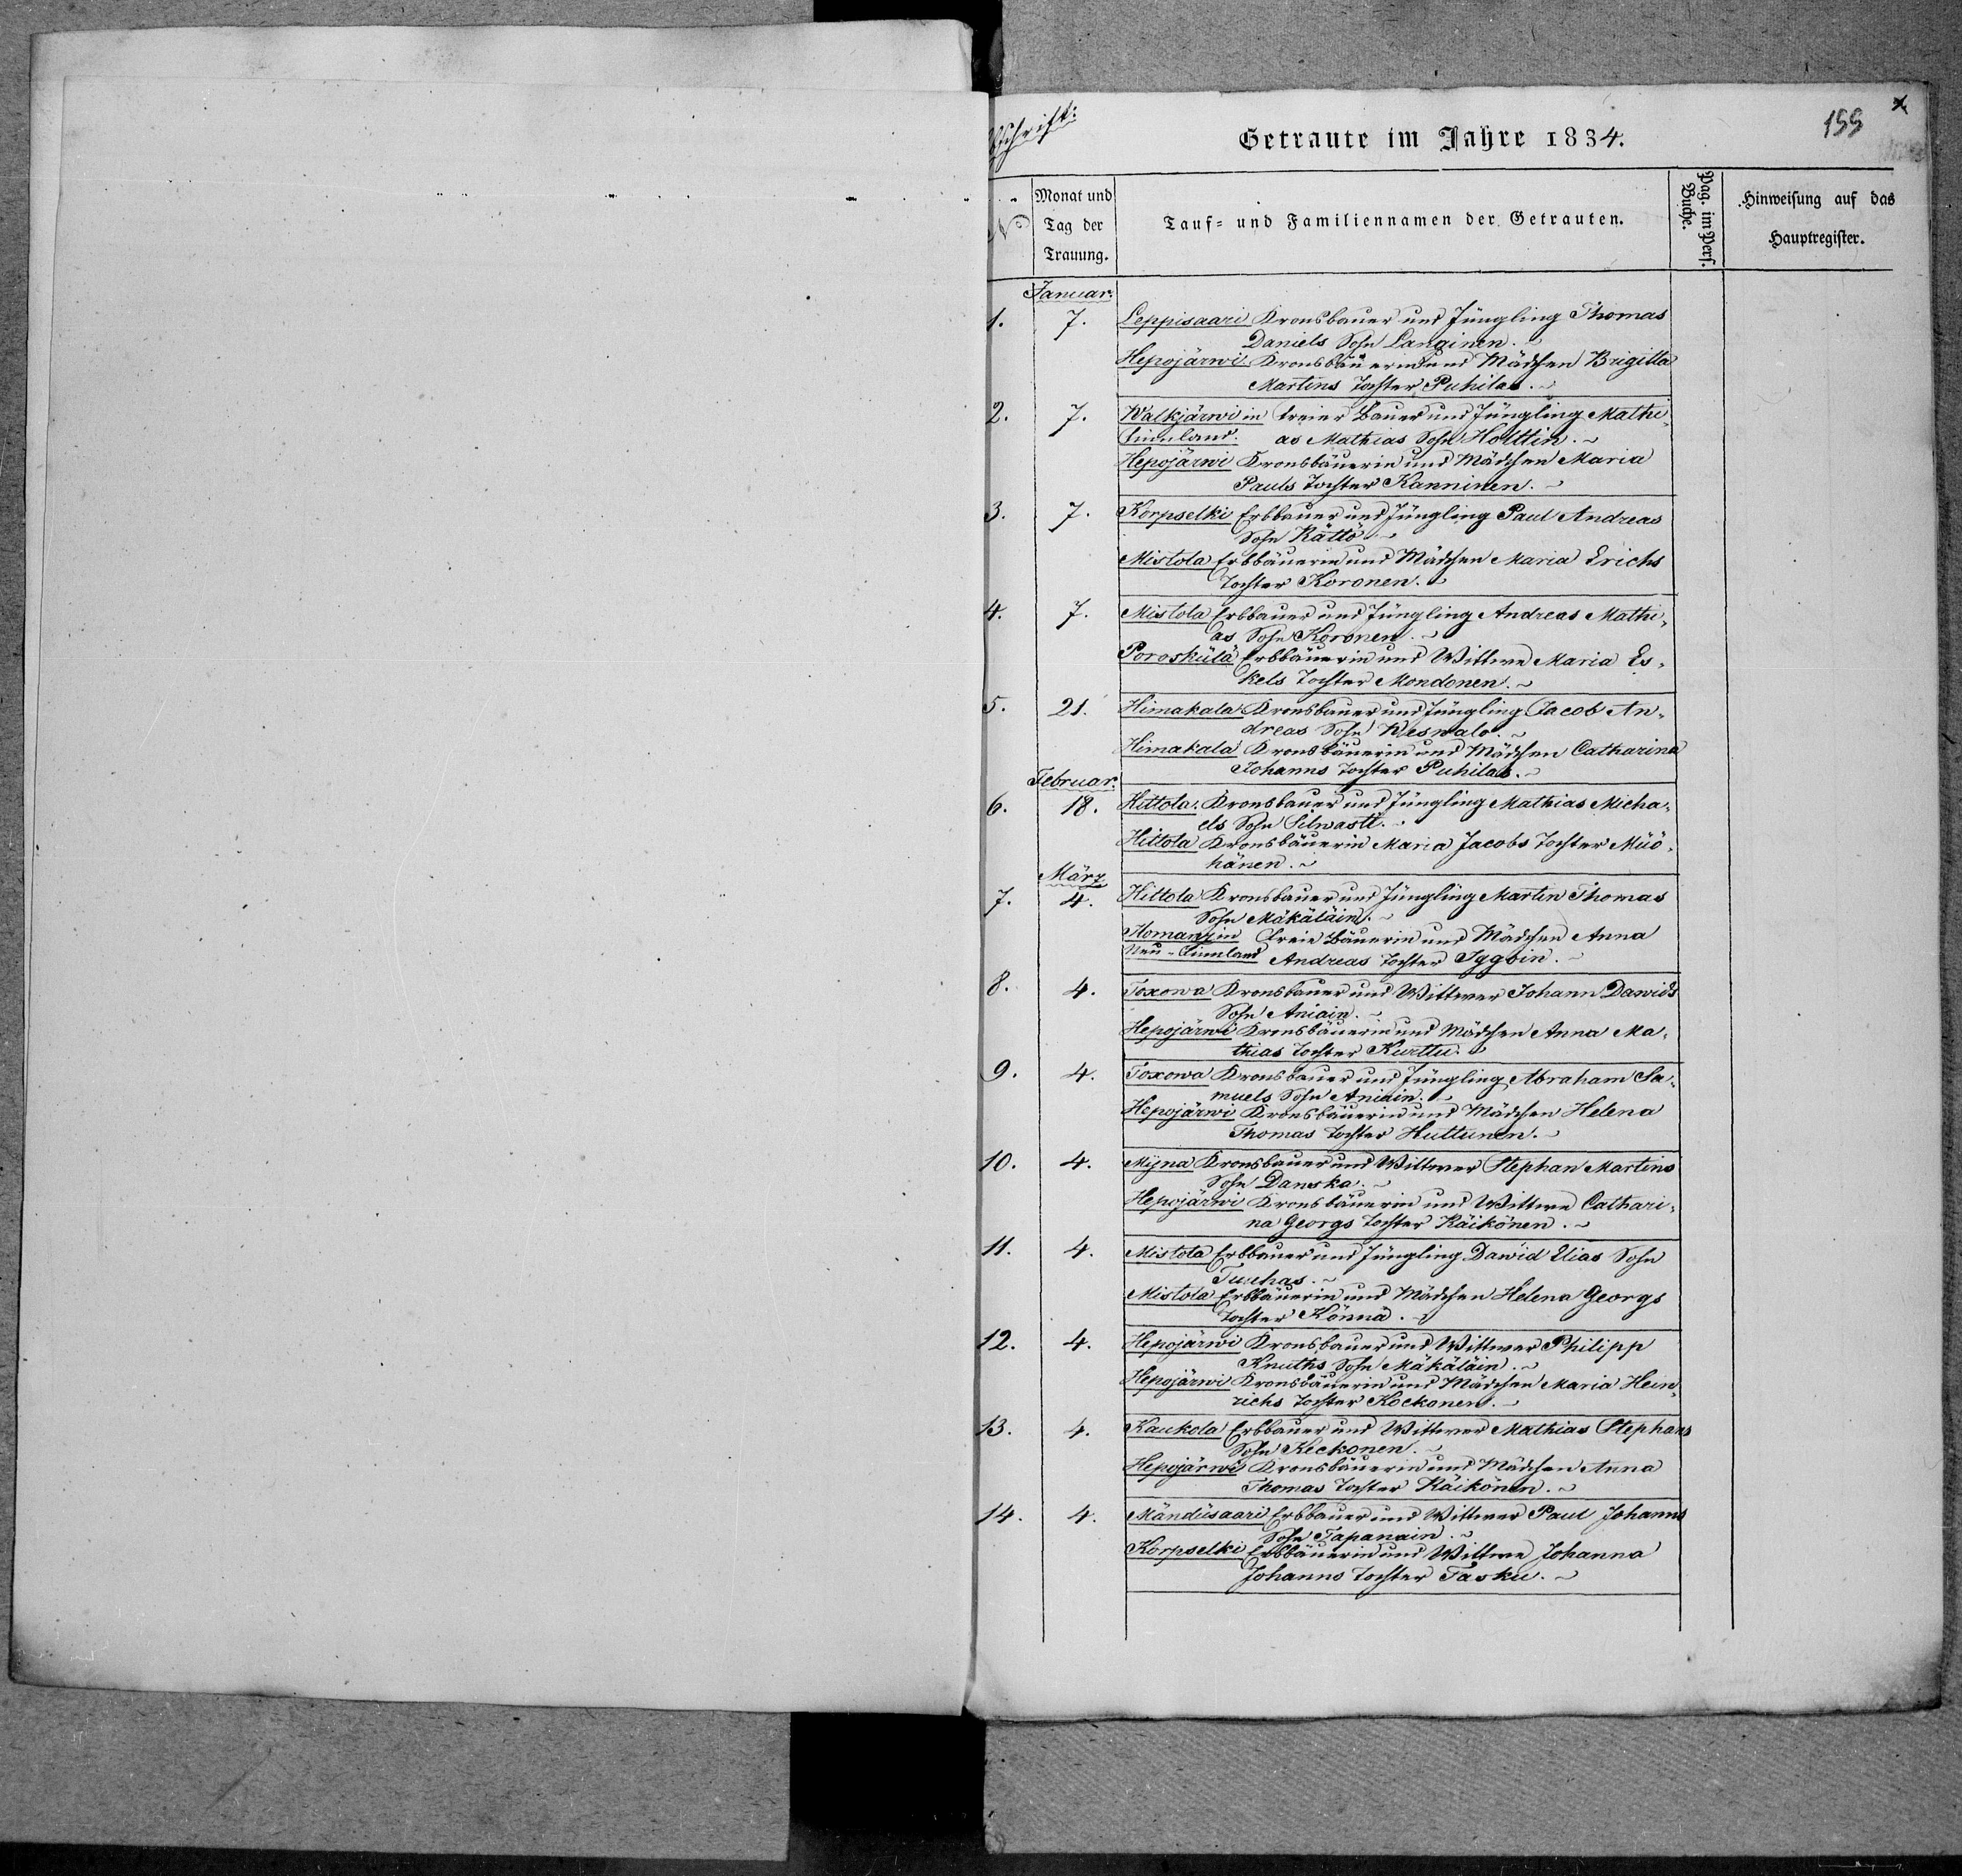 Getraute im Jahre 1834.
155
Monat und Tag der Trauung.
Tauf- und Familiennamen der Getrauten.
Pag. im Pers. Buche.
Hinweisung auf das Hauptregister.
Januar:
1. 7. Leppisaari Kronsbauer und Jüngling Thomas
Daniels Sohn Langinen.
Hepojärwi Kronsbäuerin und Mädchen Brigitta
Martins Tochter Puhilas.
2. 7. Walkjärwi in freier Bauer und Jüngling Mathi-
Finnland. as Mathias Sohn Holttin.
Hepojärwi Kronsbäuerin und Mädchen Maria
Pauls Tochter Kanninen.
3. 7. Korpselki Erbbauer und Jüngling Paul Andreas
Sohn Rättö.
Mistola Erbbäuerin und Mädchen Maria Erichs
Tochter Koronen.
4. 7. Mistola Erbbauer und Jüngling Andreas Mathi-
as Sohn Koronen.
Poroskülä Erbbäuerin und Wittwe Maria Es-
kels Tochter Mondonen.
5. 21. Himakala Kronsbauer und Jüngling Jacob An-
dreas Sohn Weswalo.
Himakala Kronsbäuerin und Mädchen Catharina
Johanns Tochter Puhilas.
Februar:
6. 18. Hittola Kronsbauer und Jüngling Mathias Micha-
els Sohn Silwasti.
Hittola Kronsbäuerin Maria Jacobs Tochter Müö-
hänen.
März
7. 4. Hittola Kronsbauer und Jüngling Martin Thomas
Sohn Mäkäläin.
Homanz in freie Bäuerin und Mädchen Anna
Neu-Finnland Andreas Tochter Iggoin.
8. 4. Toxowa Kronsbauer und Wittwer Johann Dawids
Sohn Aniain.
Hepojärwi Kronsbäuerin und Mädchen Anna Ma-
thias Tochter Kurttu.
9. 4. Toxowa Kronsbauer und Jüngling Abraham Sa-
muels Sohn Aniain.
Hepojärwi Kronsbäuerin und Mädchen Helena
Thomas Tochter Huttunen.
10. 4. Mijna Kronsbauer und Wittwer Stephan Martins
Sohn Danska.
Hepojärwi Kronsbäuerin und Wittwe Cathari-
na Georgs Tochter Räikönen.
11. 4. Mistola Erbbauer und Jüngling Dawid Elias Sohn
Turchas.
Mistola Erbbäuerin und Mädchen Helena Georgs
Tochter Könnä.
12. 4. Hepojärwi Kronsbauer und Wittwer Philipp
Knuths Sohn Mäkäläin.
Hepojärwi Kronsbäuerin und Mädchen Maria Hein-
richs Tochter Kockonen.
13. 4. Kaukola Erbbauer und Wittwer Mathias Stephans
Sohn Keckonen.
Hepojärwi Kronsbäuerin und Mädchen Anna
Thomas Tochter Räikönen.
14. 4. Mändüsaari Erbbauer und Wittwer Paul Johanns
Sohn Tapanain.
Korpselki Erbbäuerin und Wittwe Johanna
Johanns Tochter Tasku.